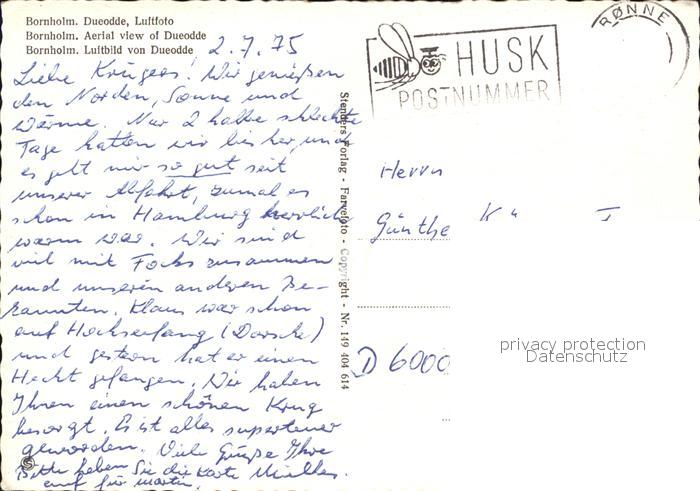 Bornholm. Dueodde, Luftfoto
Bornholm. Aerial view of Dueodde
Bornholm. Luftbild von Dueodde
2.7.75
Liebe Krügers! Wir genießen
den Norden, Sonne und
Wärme. Nur 2 halbe schlechte
Tage hatten wir bisher, und
es geht mir so gut seit
unserer Abfahrt, zumal es
schon in Hamburg herrlich
warm war. Wir sind
viel mit Focks zusammen
und unseren anderen Be-
kannten. Klaus war schon
auf Hochseefang (Dorsche)
und gestern hat er einen
Hecht gefangen. Wir haben
Ihnen einen schönen Krug
besorgt. Es ist alles superteuer
geworden. Viele Grüße Ihre
Bitte heben Sie die Karte
auf für Martin.
Stenders Forlag - Farvefoto - Copyright - Nr. 149 404 614
HUSK
POSTNUMMER
RØNNE
Herrn
Günthe K
D 6000
privacy protection
Datenschutz